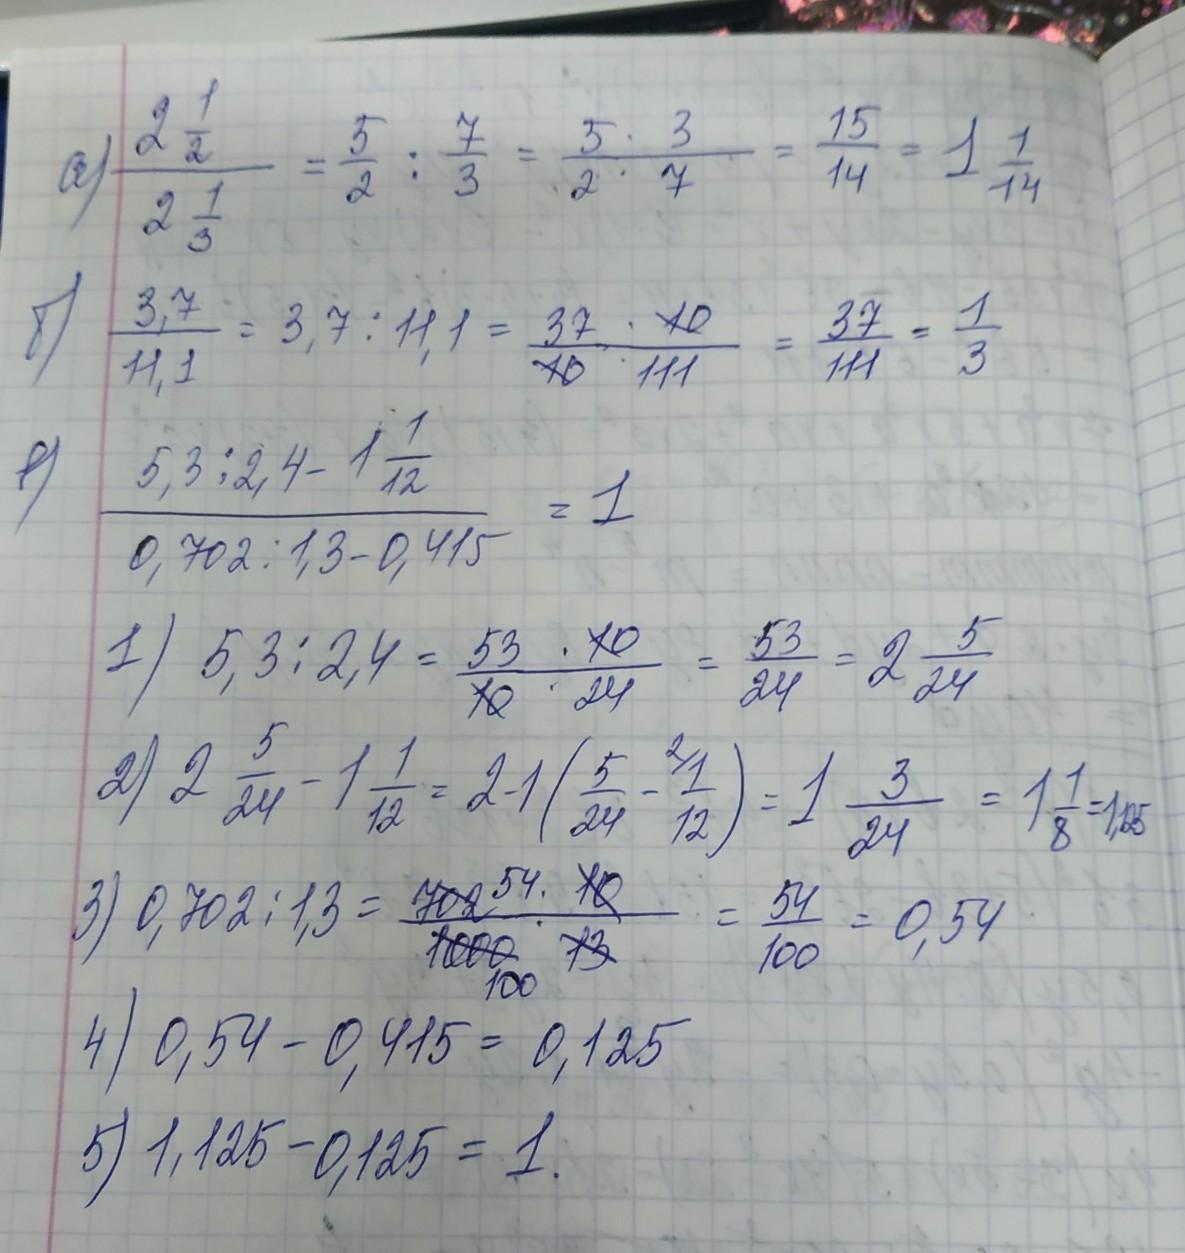 а) 2 1/2 / 2 1/3 = 5/2 : 7/3 = 5 · 3 / 2 · 7 = 15/14 = 1 1/14
б) 3,7/11,1 = 3,7 : 11,1 = 37 · 10 / 10 · 111 = 37/111 = 1/3
5,3 : 2,4 - 1 1/12 / 0,702 : 1,3 - 0,415 = 1
1) 5,3 : 2,4 = 53 · 10 / 10 · 24 = 53/24 = 2 5/24
2) 2 5/24 - 1 1/12 = 2-1 (5/24 - 2/1/12) = 1 3/24 = 1 1/8 = 1,125
3) 0,702 : 1,3 = 702 54 · 10 / 1000 100 · 13 = 54/100 = 0,54
4) 0,54 - 0,415 = 0,125
5) 1,125 - 0,125 = 1.